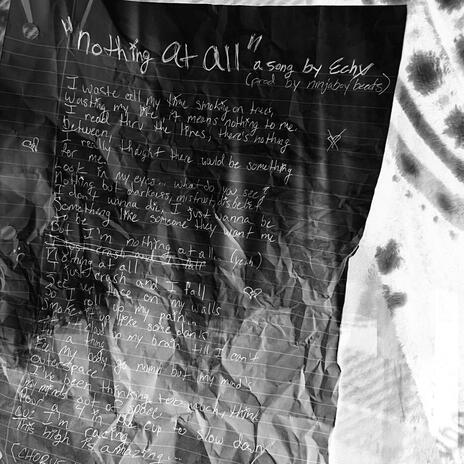 "nothing at all" a song by Echx
(prod by ninjaboy beats)
I waste all my time smoking on trees,
Wasting my life, it means nothing to me.
I read thru the lines, there's nothing
between,
I really thought there would be something
for me.
Look in my eyes... what do you see?
Nothing but darkness, mistrust, disbelief.
I don't wanna die, I just wanna be
Something like someone they want me
to be
But I'm nothing at all... (yeah)
Nothing at all
I just crash and I fall
See ur face on my walls
So I roll up my pain
Smoke it up like some
in my brain till I can't
Feel my body go numb but my mind's
outerspace
I've been thinking too much, think
my minds out of space
Pour a 4 in the cup to slow down
But I'm racing
This high is amazing...
(CHORUS